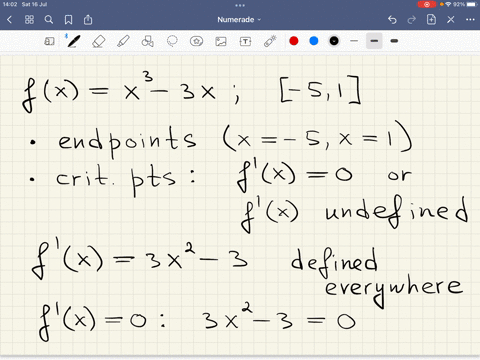 14:02 Sat 16 Jul
92%
Numerade
f(x) = x³ - 3x ; [-5, 1]
• endpoints (x = -5, x = 1)
• crit. pts : f'(x) = 0 or
f'(x) undefined
f'(x) = 3x² - 3 defined
everywhere
f'(x) = 0 : 3x² - 3 = 0